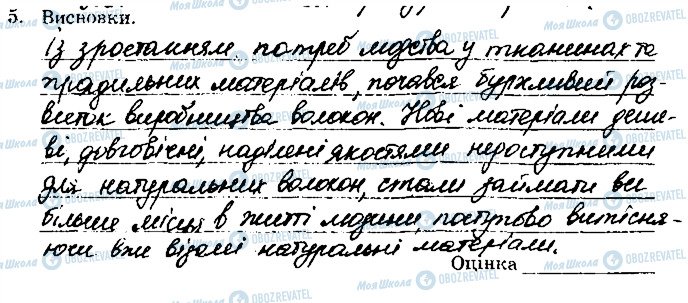 5. Висновки.
Із зростанням потреб людства у тканинах та
прядильних матеріалів, почався бурхливий роз-
виток виробництва волокон. Нові матеріали деше-
ві, довговічні, наділені якостями недоступними
для натуральних волокон, стали займати все
більше місця в житті людини, поступово витісня-
ючи вже відомі натуральні матеріали.
Оцінка